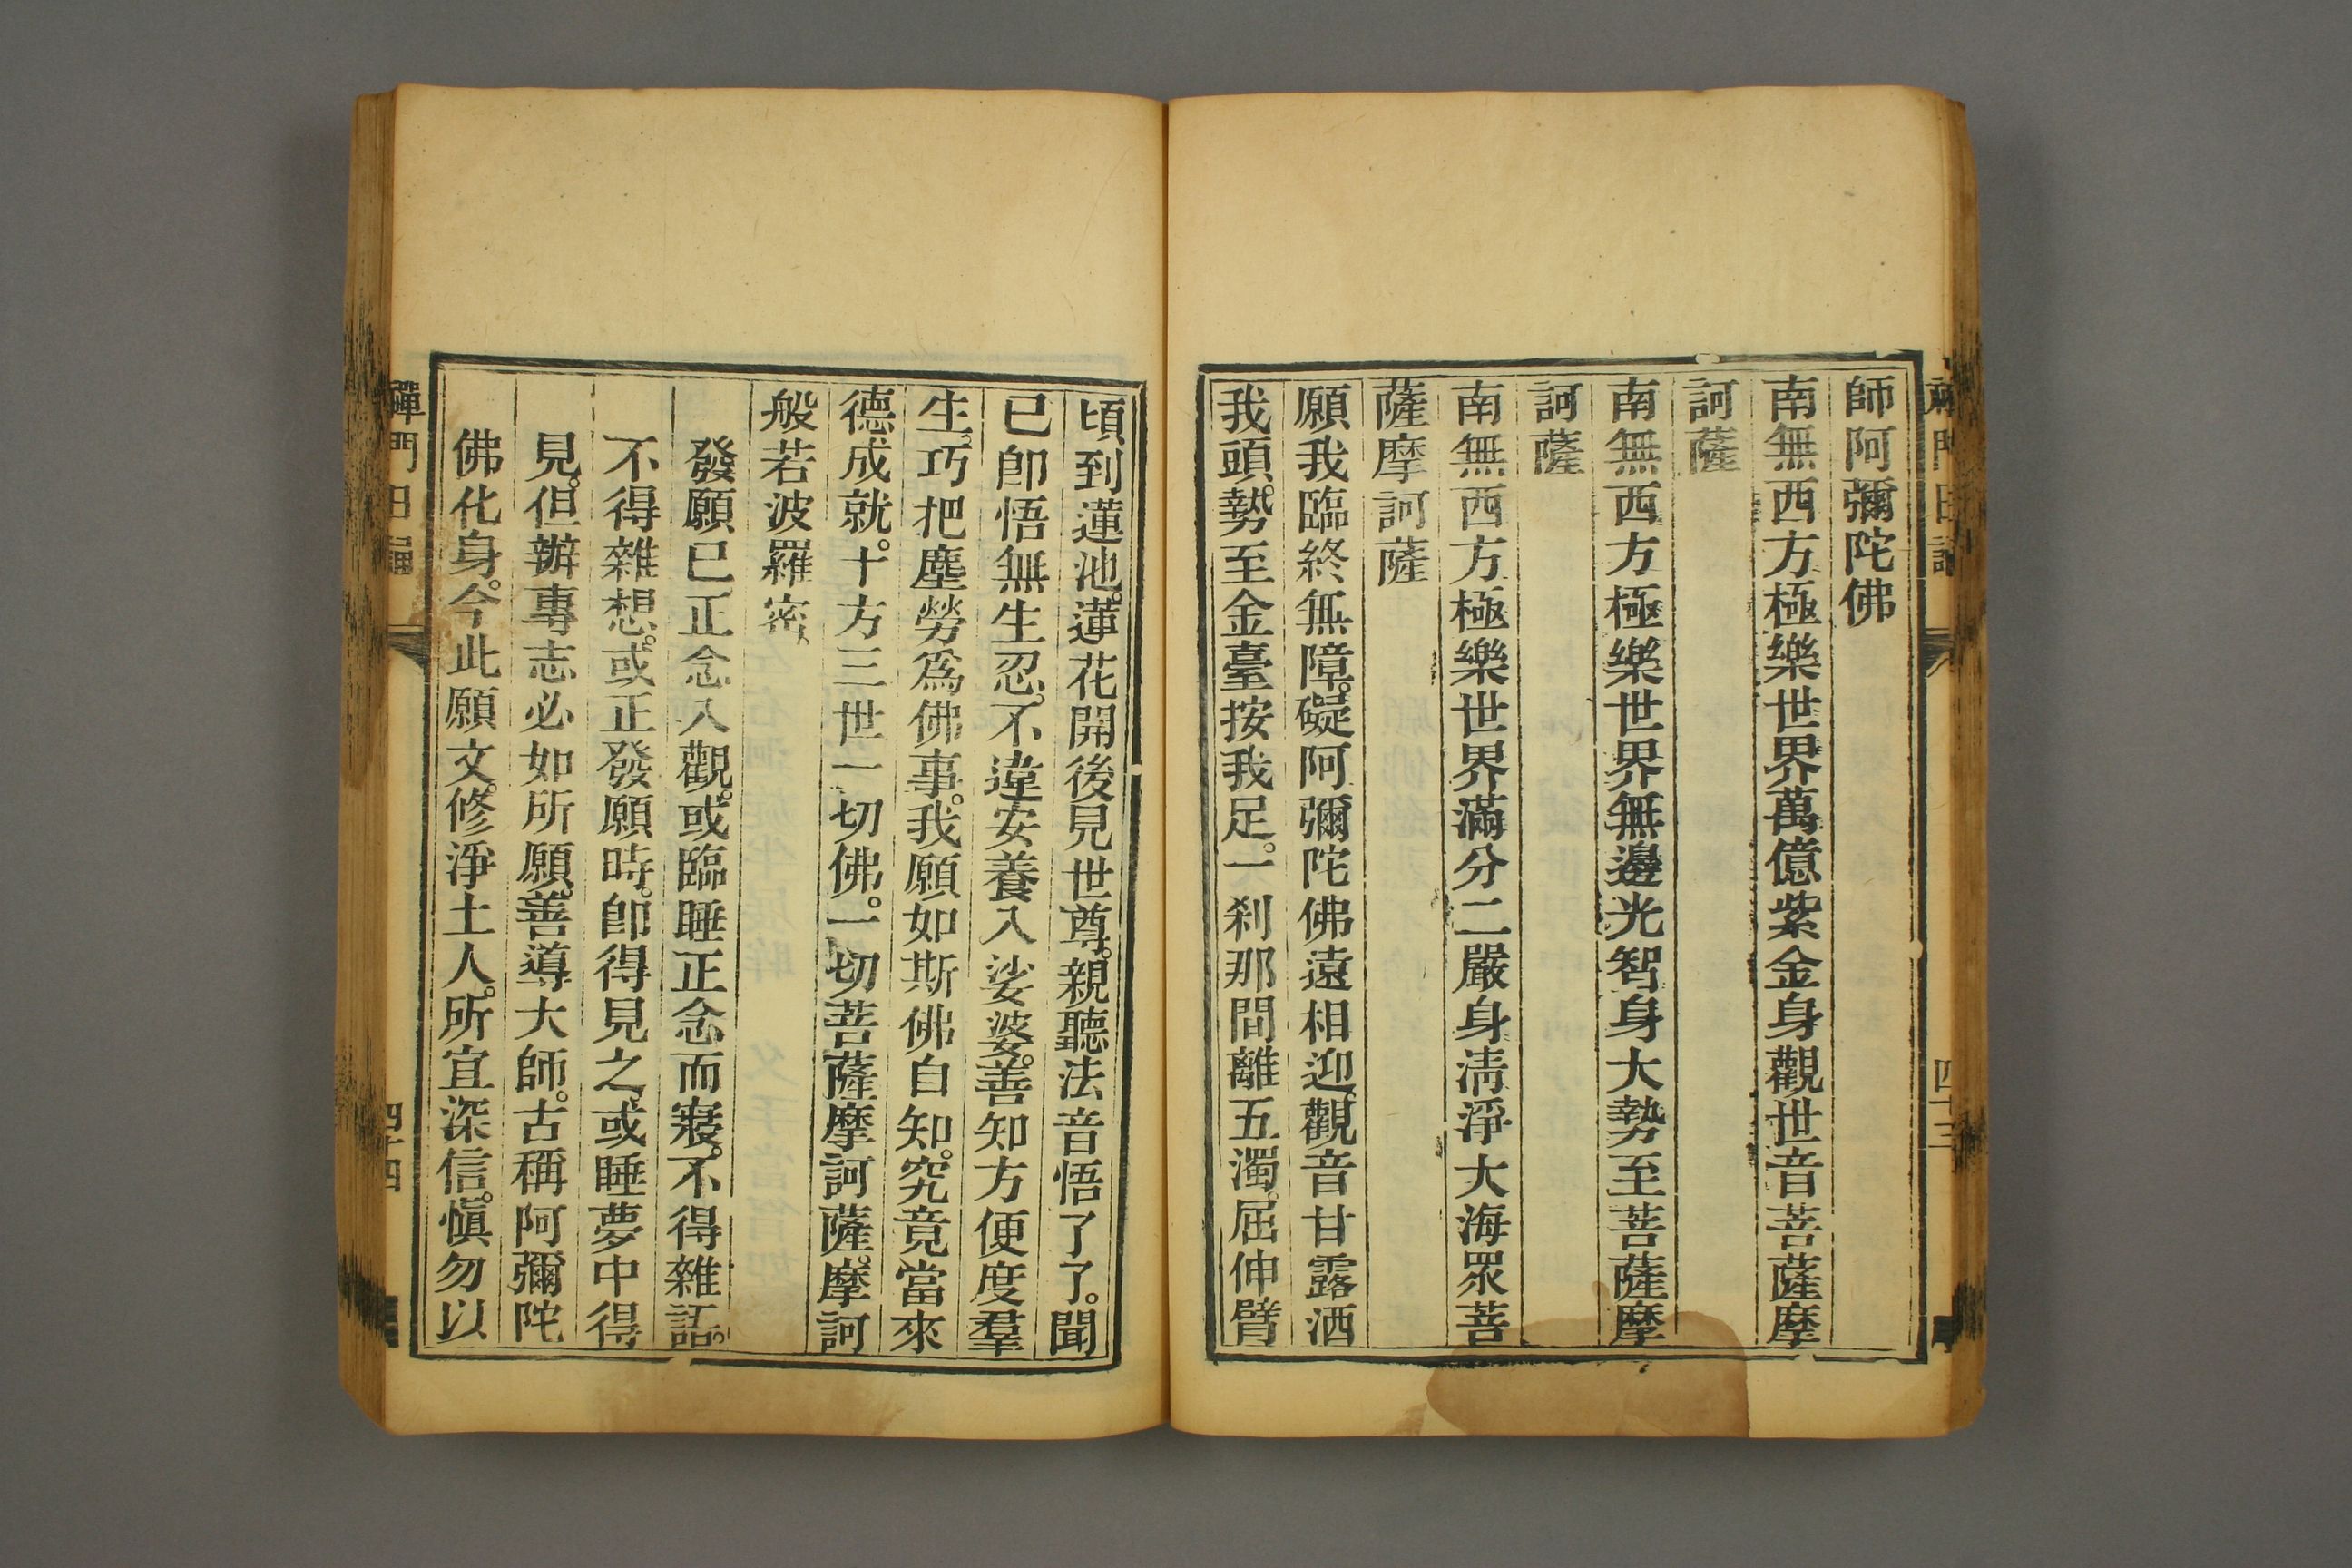 師阿彌陀佛
南無西方極樂世界萬億紫金身觀世音菩薩摩
訶薩
南無西方極樂世界無邊光智身大勢至菩薩摩
訶薩
南無西方極樂世界滿分二嚴身淸淨大海眾菩
薩摩訶薩
願我臨終無障。礙阿彌陀佛遠相迎。觀音甘露洒
我頭。勢至金臺按我足。一刹那間離五濁。屈伸臂
頃到蓮池。蓮花開後見世尊。親聽法音悟了了。聞
已卽悟無生忍。不違安養入娑婆。善知方便度羣
生。巧把塵勞爲佛事。我願如斯佛自知。究竟當來
德成就。十方三世一切佛。一切菩薩摩訶薩。摩訶
般若波羅密、
發願已正念入觀。或臨睡正念而寢。不得雜話。
不得雜想。或正發願時。卽得見之、或睡夢中得
見。但辦專志必如所願。善導大師。古稱阿彌陀
佛化身。今此願文。修淨土人。所宜深信。愼勿以
禪門日誦
四十三
四十四